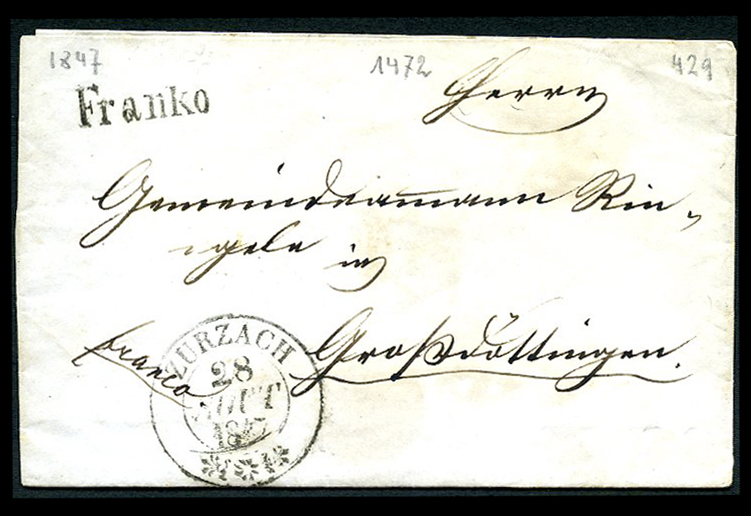 1847 1472 429
Franko
Herrn
Gemeindeammann Rin-
gele in
Großdöttingen.
franco.
ZURZACH
28
AOUT
1847